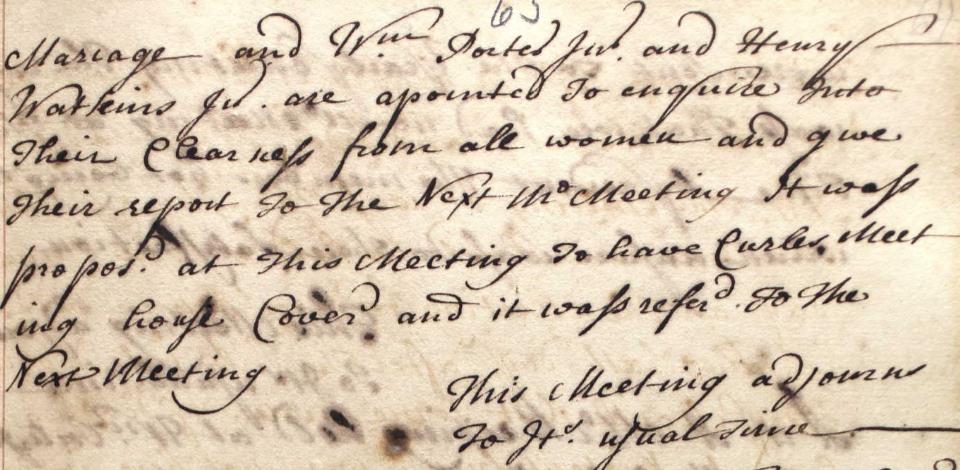 63
Mariage and Wm Porter Jur. and Henry
Watkins Jur. are apointed To enquire Into
Their Clearness from all women and give
Their report To The Next Mo Meeting It wass
propos.d at This Meeting To have Curles Meet
ing house Cover'd and it wass refer'd To The
Next Meeting
This Meeting adjourns
To Its. usual Time